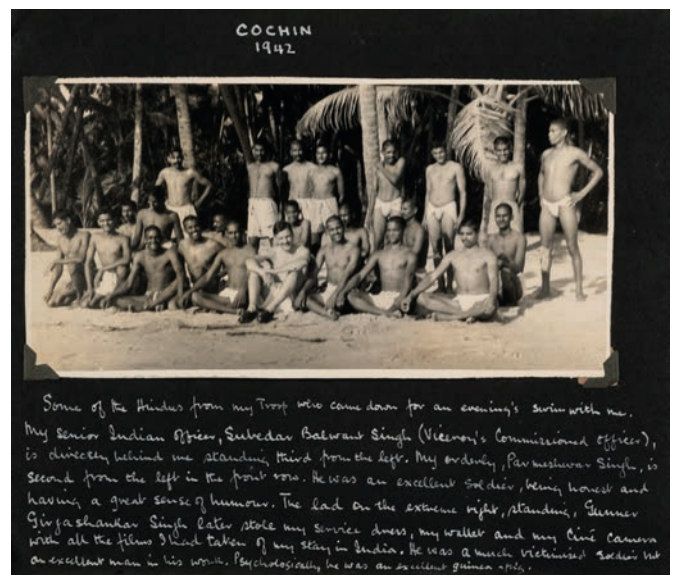 COCHIN
1942
Some of the Hindus from my Troop who came down for an evening's swim with me.
My senior Indian Officer, Subedar Balwant Singh (Viceroy's Commissioned officer),
is directly behind me standing third from the left. My orderly, Parmeshwar Singh, is
second from the left in the front row. He was an excellent soldier, being honest and
having a great sense of humour. The lad on the extreme right, standing, Gunner
Girjashankar Singh later stole my service dress, my wallet and my Ciné Camera
with all the films I had taken of my stay in India. He was a much victimised soldier but
an excellent man in his work. Psychologically he was an excellent guinea-pig.